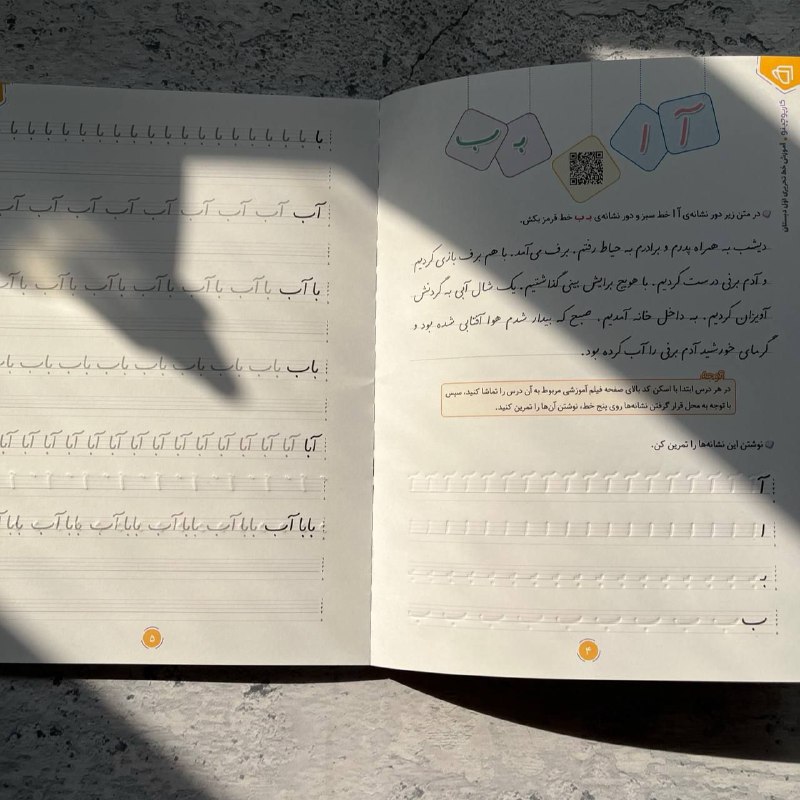 آ ا بـ ب
کاربوجینو • آموزش خط تحریری اول دبستان
در متن زیر دور نشانه‌ی آ ا خط سبز و دور نشانه‌ی بـ ب خط قرمز بکش.
دیشب به همراه پدرم و برادرم به حیاط رفتم. برف می‌آمد. با هم برف بازی کردیم
و آدم برفی درست کردیم. با هویج برایش بینی گذاشتیم. یک شال آبی به گردنش
آویزان کردیم. به داخل خانه آمدیم. صبح که بیدار شدم هوا آفتابی شده بود و
گرمای خورشید آدم برفی را آب کرده بود.
توجه
در هر درس ابتدا با اسکن کد بالای صفحه فیلم آموزشی مربوط به آن درس را تماشا کنید، سپس
با توجه به محل قرار گرفتن نشانه‌ها روی پنج خط، نوشتن آن‌ها را تمرین کنید.
نوشتن این نشانه‌ها را تمرین کن.
آ
ا
بـ
ب
۴
با با با با با با با با با با با با با با با با با با
آب آب آب آب آب آب آب آب آب
با آب با آب با آب با آب با آب با آب با آب
باب باب باب باب باب باب باب باب باب
آبا آبا آبا آبا آبا آبا آبا آبا آبا آبا آبا آبا
بابا آب بابا آب بابا آب بابا آب بابا آب بابا
۵